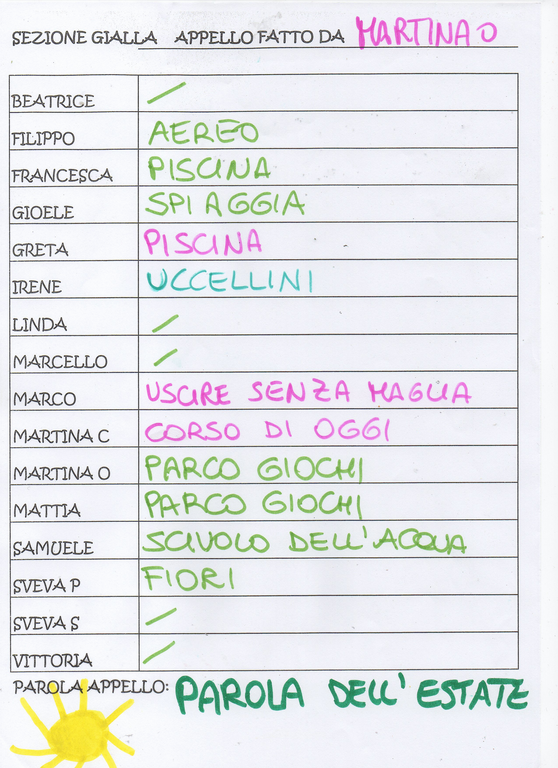 SEZIONE GIALLA APPELLO FATTO DA MARTINA O
BEATRICE /
FILIPPO AEREO
FRANCESCA PISCINA
GIOELE SPIAGGIA
GRETA PISCINA
IRENE UCCELLINI
LINDA /
MARCELLO /
MARCO USCIRE SENZA MAGLIA
MARTINA C CORSO DI OGGI
MARTINA O PARCO GIOCHI
MATTIA PARCO GIOCHI
SAMUELE SCIVOLO DELL'ACQUA
SVEVA P FIORI
SVEVA S /
VITTORIA /
PAROLA APPELLO: PAROLA DELL'ESTATE